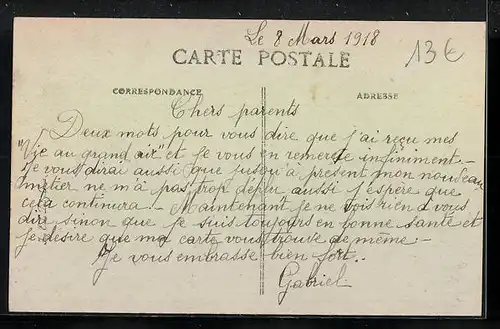 Le 8 Mars 1918
13€
CARTE POSTALE
CORRESPONDANCE
ADRESSE
Chers parents
Deux mots pour vous dire que j'ai reçu mes
"Vie au grand air" et je vous en remercie infiniment -
Je vous dirai aussi que jusqu'à présent mon nouveau
métier ne m'à pas trop déplu aussi j'espère que
cela continuera. - Maintenant je ne vois rien à vous
dire sinon que je suis toujours en bonne santé et
je désire que ma carte vous trouve de même -
Je vous embrasse bien fort..
Gabriel